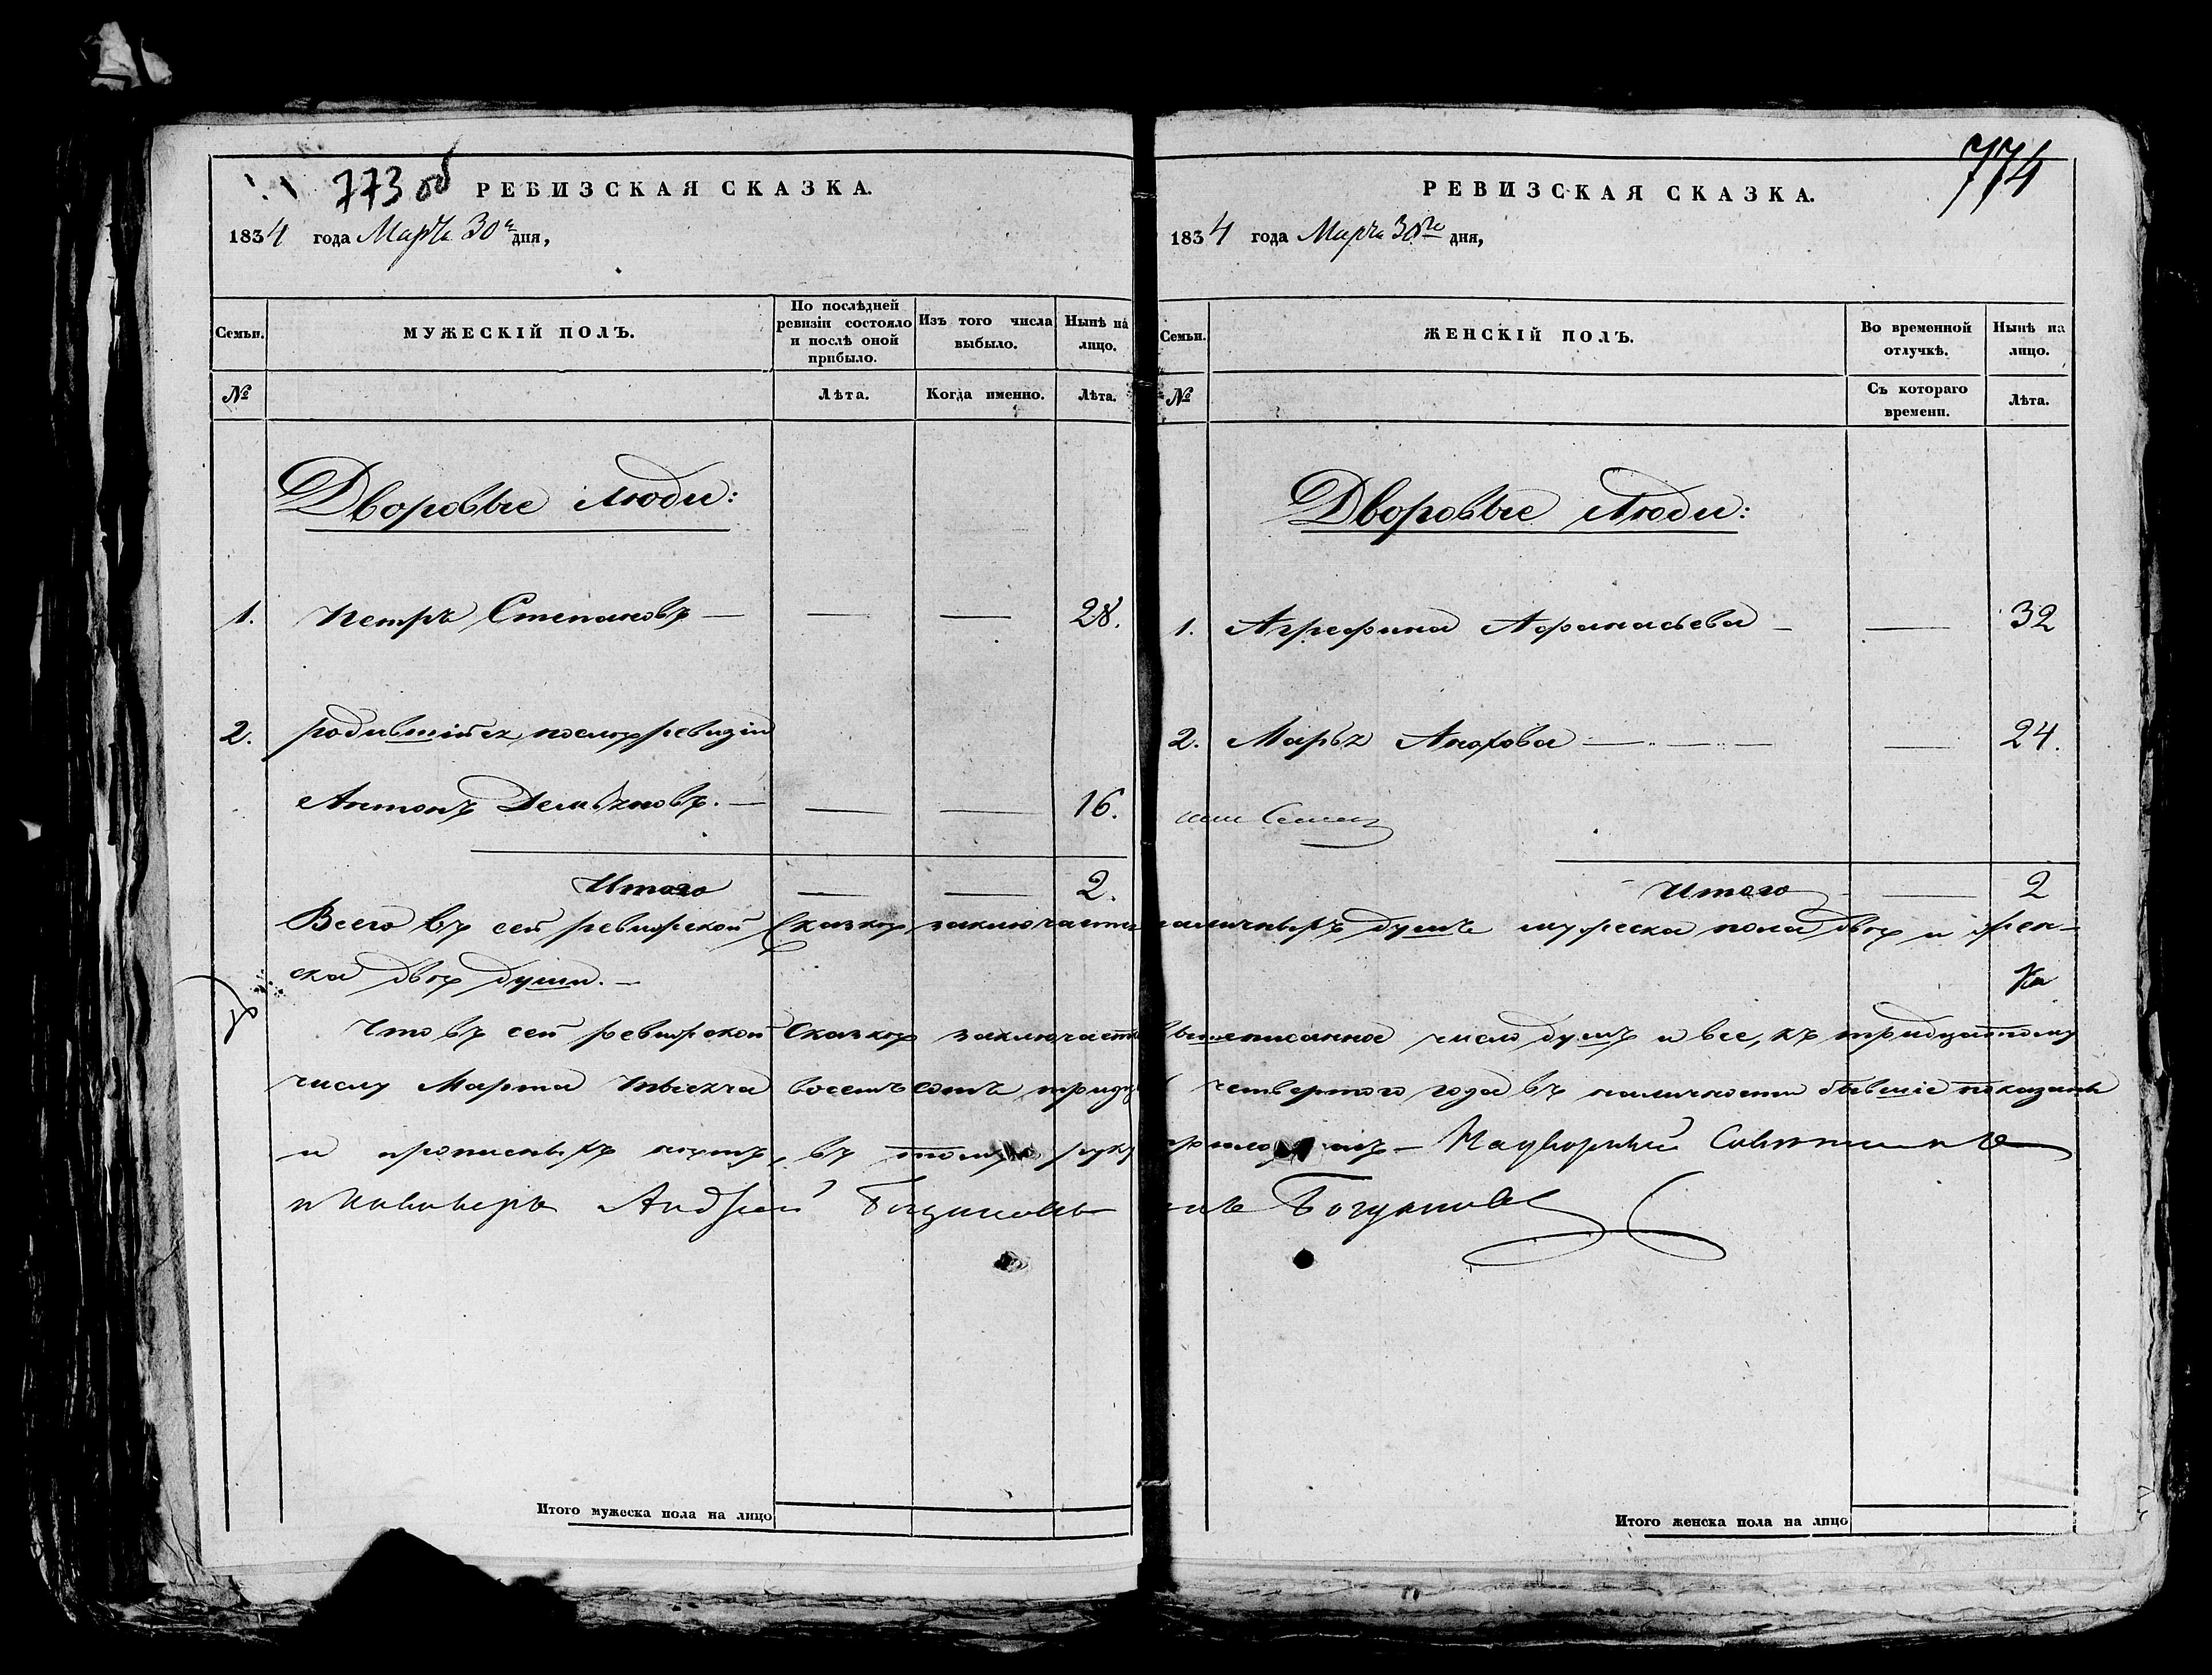 773 об
РЕВИЗСКАЯ СКАЗКА.
1834 года Марта 30 дня,
Семьи.
МУЖЕСКІЙ ПОЛЪ.
По послѣдней ревизіи состояло и послѣ оной прибыло.
Изъ того числа выбыло.
Нынѣ на лицо.
№
Лѣта.
Когда именно.
Лѣта.
Дворовые люди:
1. Петръ Степановъ — — — 28.
2. родившійся послѣ ревизіи
Антонъ Демьяновъ. — — — 16.
Итого — — 2.
774
РЕВИЗСКАЯ СКАЗКА.
1834 года Марта 30го дня,
Семьи.
ЖЕНСКІЙ ПОЛЪ.
Во временной отлучкѣ.
Нынѣ на лицо.
№
Съ котораго времени.
Лѣта.
Дворовые Люди:
1. Агрефина Афанасьева — — 32
2. Марья — — 24.
Итого — 2
Всего въ сей ревизской Сказкѣ заключается наличныхъ душъ мужеска пола двѣ и жен-
ска двѣ души. —
Что въ сей ревизской Сказкѣ заключается вышеписанное число душъ и все, къ тридцатому
числу Марта тысяча восемьсотъ тридцать четвертого года въ наличности бывшіе показаны
и прописныхъ нѣтъ, въ томъ руку — Надворный Совѣтникъ
и Кавалеръ Андрей Богданов
Итого мужеска пола на лицо
Итого женска пола на лицо